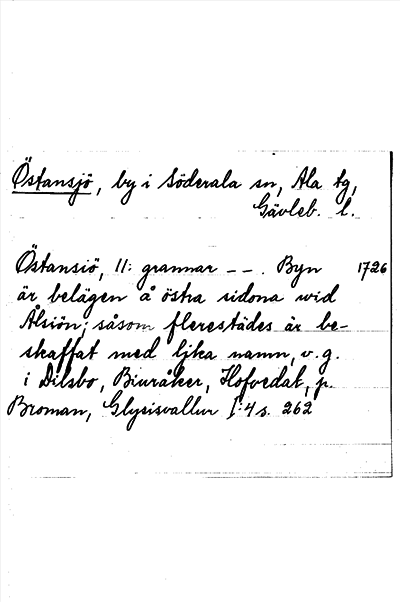 Östansjö, by i Söderala sn, Ala tg,
Gävleb. l.
Östansiö, 11: grannar - - . Byn 1726
är belägen å östra sidona wid
Alsiön; såsom flerestädes är be-
skaffat med lika namn, v. g.
i Dilsbo, Biuråker, Hofvedat, p.
Broman, Glysisvallur I:4 s. 262